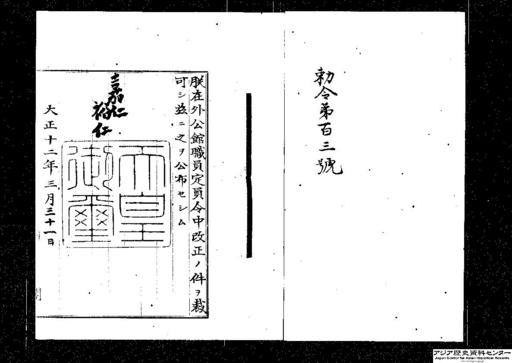 勅令第百三號
朕在外公館職員定員令中改正ノ件ヲ裁
可シ玆ニ之ヲ公布セシム
嘉仁
裕仁
天皇
御璽
大正十二年三月三十一日
アジア歴史資料センター
Japan Center for Asian Historical Records